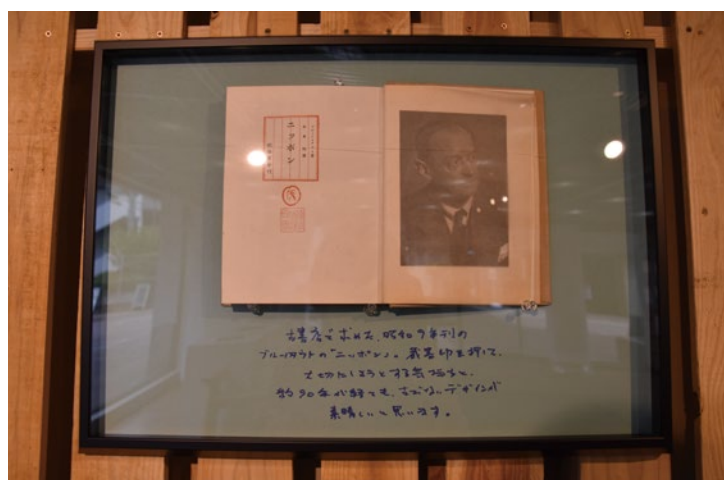 ニッポン
古書店で求めた、昭和9年刊の
ブルーノ・タウトの「ニッポン」。蔵書印を押して、
大切にしようとする気持ちと、
約90年が経っても、古びないデザインが
素晴しいと思います。